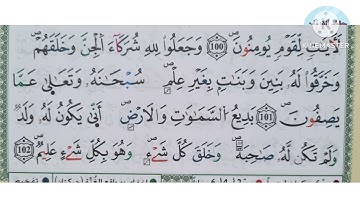 لَآيَٰتٍ لِّقَوْمٍ يُومِنُونَ ۖ 100 وَجَعَلُوا۟ لِلهِ شُرَكَآءَ اَ۬لْجِنَّ وَخَلَقَهُمْ ۖ
وَخَرَّقُوا۟ لَهُۥ بَنِينَ وَبَنَٰتِۢ بِغَيْرِ عِلْمٍ ۖ سُبْحَٰنَهُۥ وَتَعَٰلَىٰ عَمَّا
يَصِفُونَ ۖ 101 بَدِيعُ اُ۬لسَّمَٰوَٰتِ وَالَارْضِ ۖ أَنّ۪يٰ يَكُونُ لَهُۥ وَلَدٌ
وَلَمْ تَكُن لَّهُۥ صَٰحِبَةٌ ۖ وَخَلَقَ كُلَّ شَےْءٍ ۖ وَهُوَ بِكُلِّ شَےْءٍ عَلِيمٌ ۖ 102